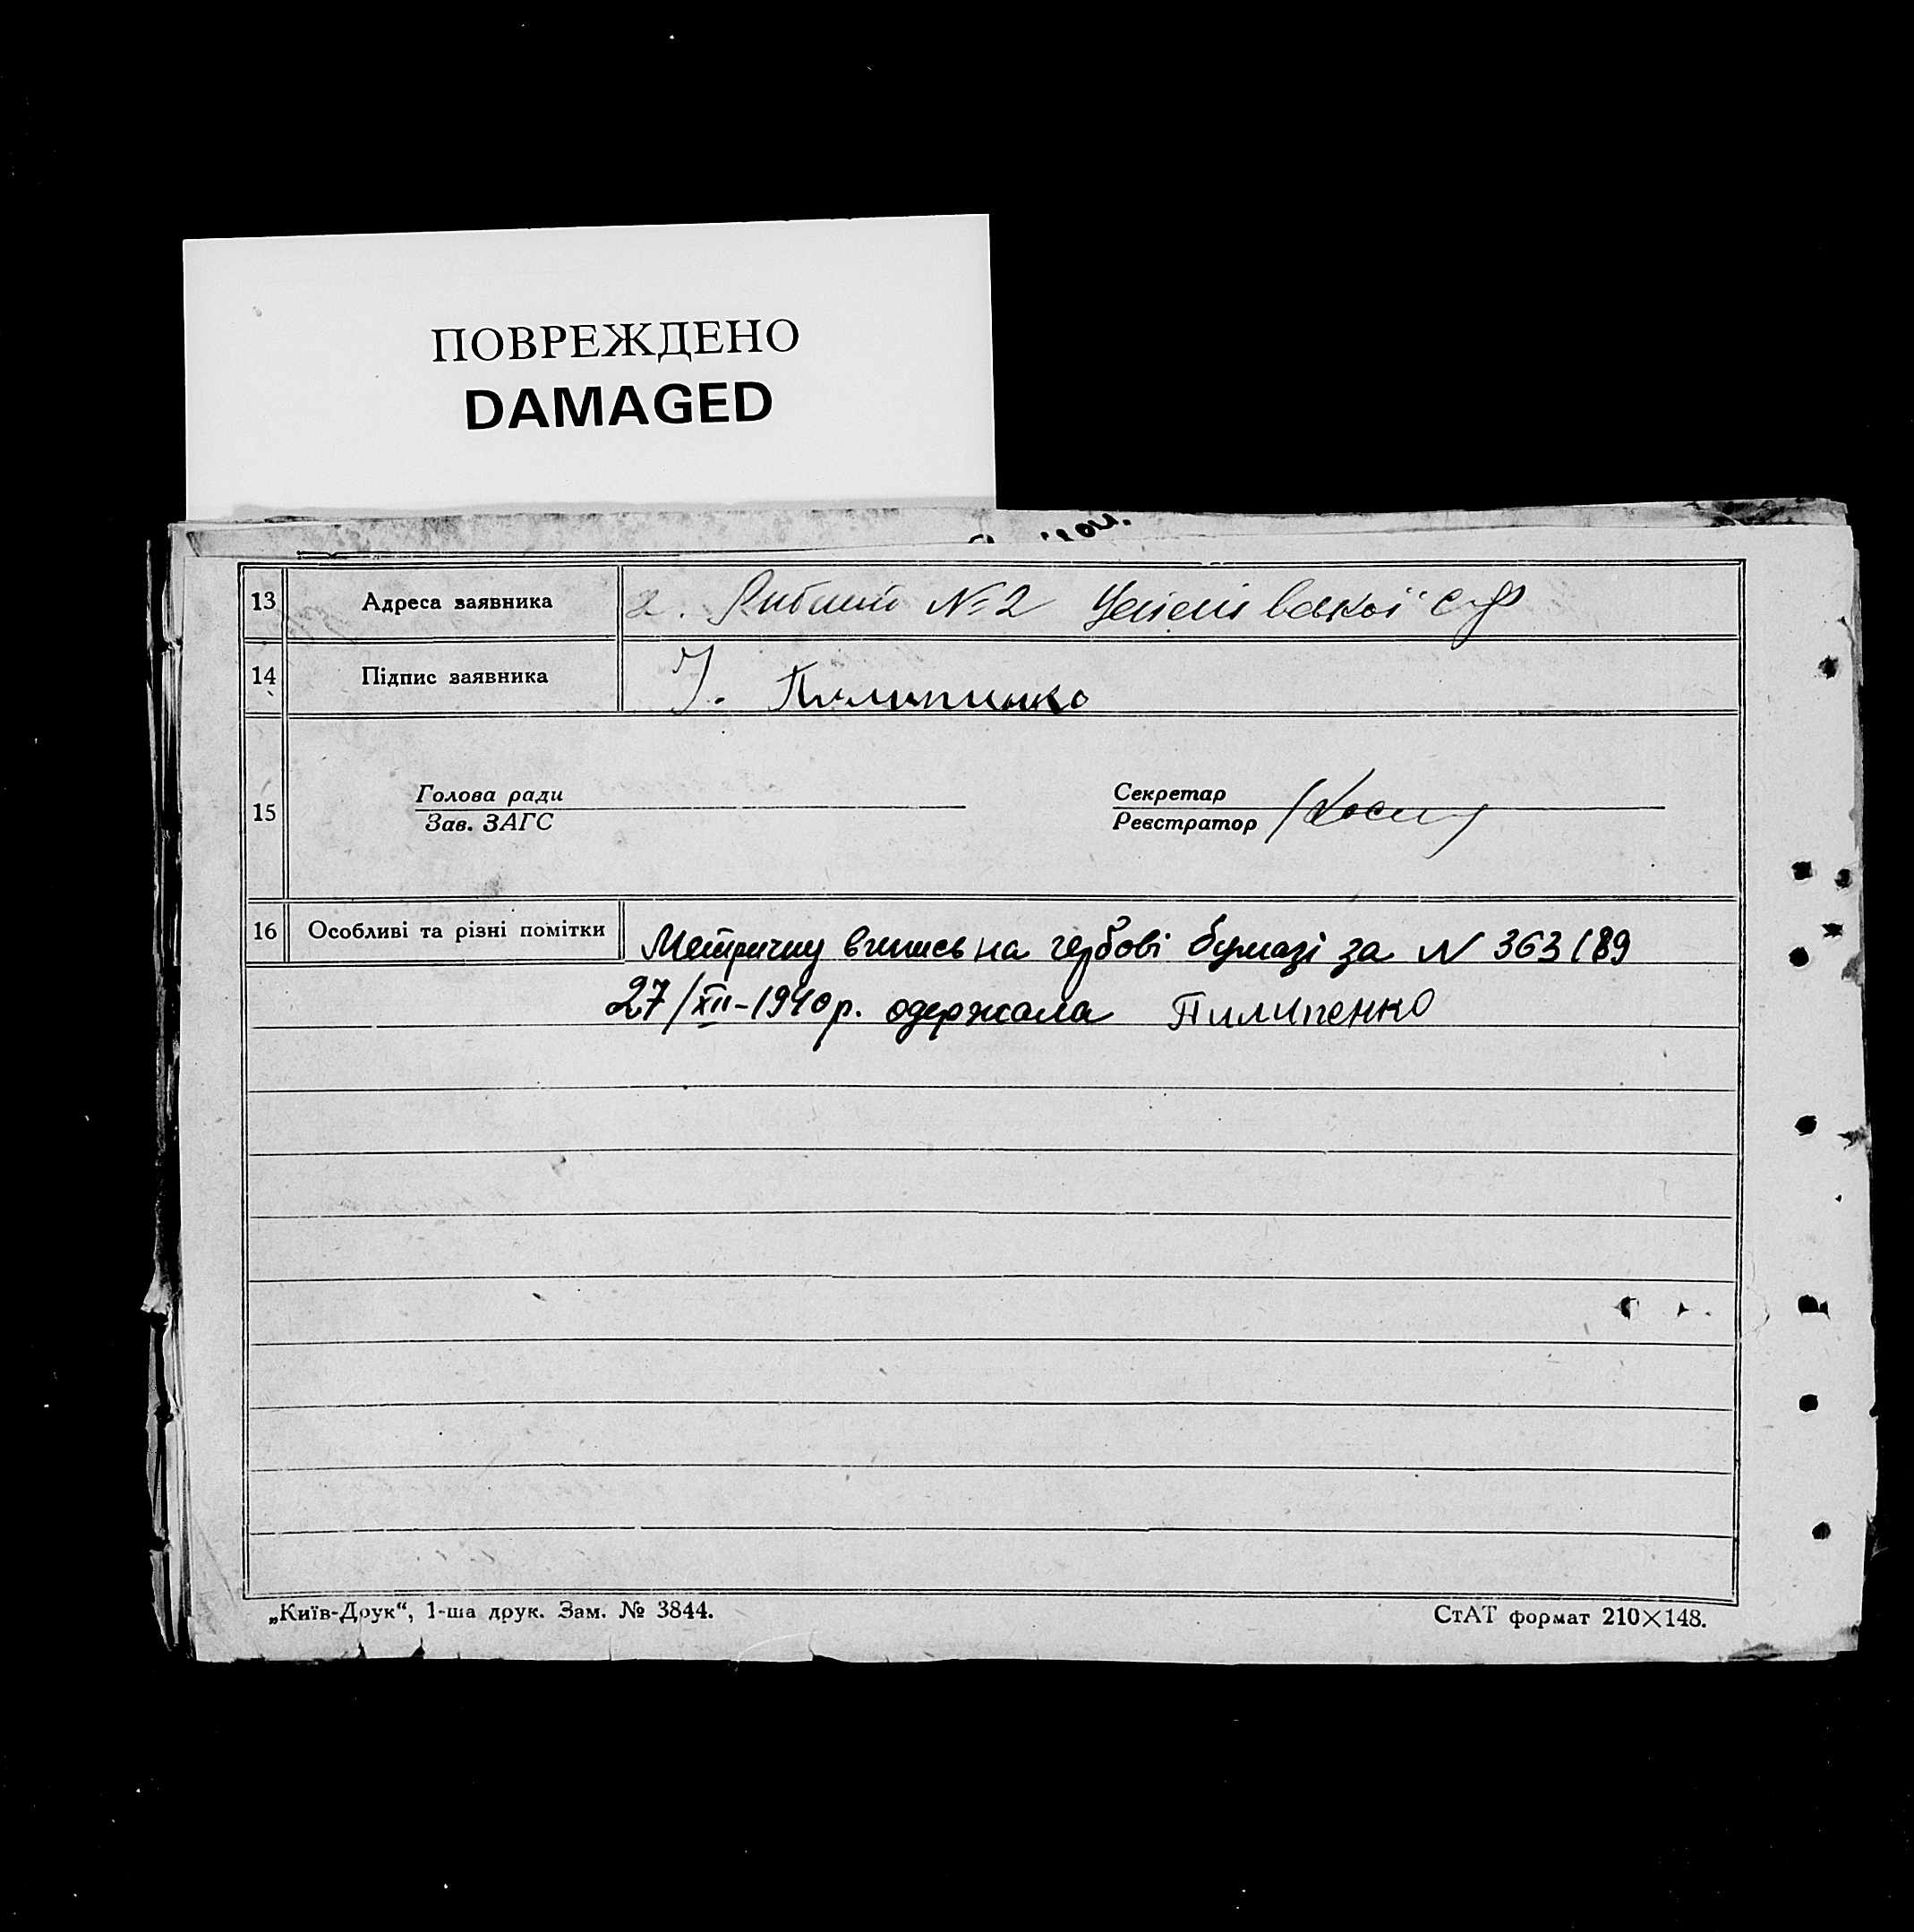 ПОВРЕЖДЕНО
DAMAGED
13 Адреса заявника №2
14 Підпис заявника Пилипинко
Голова ради Секретар
15
Зав. ЗАГС Реєстратор
16 Особливі та різні помітки Метричну впись на гербові бумазі за N 363189
27/XII-1940р. одержала Пилипенко
„Київ-Друк“, 1-ша друк. Зам. № 3844. СтАТ формат 210×148.